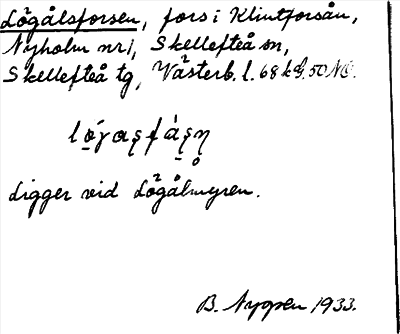 Lögålsforsen, fors i Klintforsån,
Nyholm nr 1, Skellefteå sn,
Skellefteå tg, Västerb. l. 68 kG. 50 NO.
Ligger vid Lögålmyren.
B. Nygren 1933.